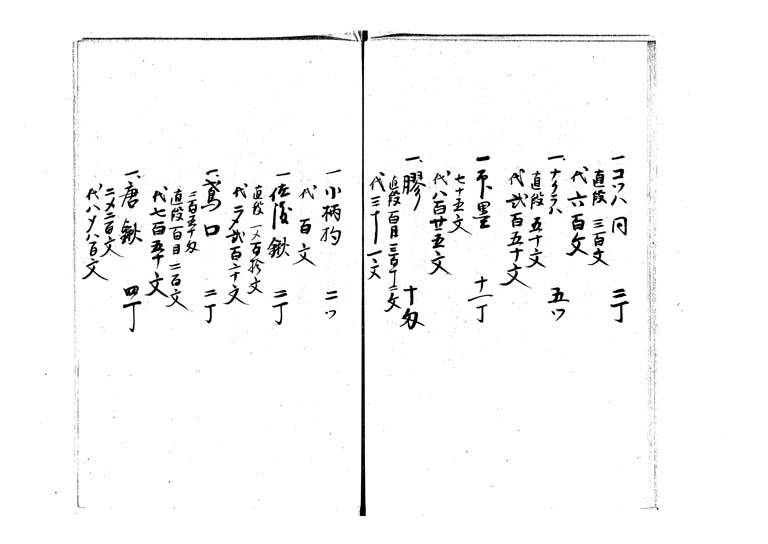 一コツハ同 二丁
直段 三百文
代六百文
一ナタラハ 五ツ
直段五十文
代弐百五十文
一下墨 十一丁
七十五文
代八百廿五文
一膠 十匁
直段百目三百十二文
代三十一文
一小柄杓 二ツ
代百文
一佐渡鍬 二丁
直段一〆百拾文
代二〆弐百二十文
一鳶口 二丁
三百五十匁
直段百目二百文
代七百五十文
一唐鍬 四丁
二〆二百文
代八〆八百文